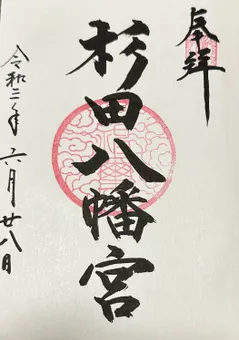 奉拝
杉田八幡宮
令和二年六月廿八日